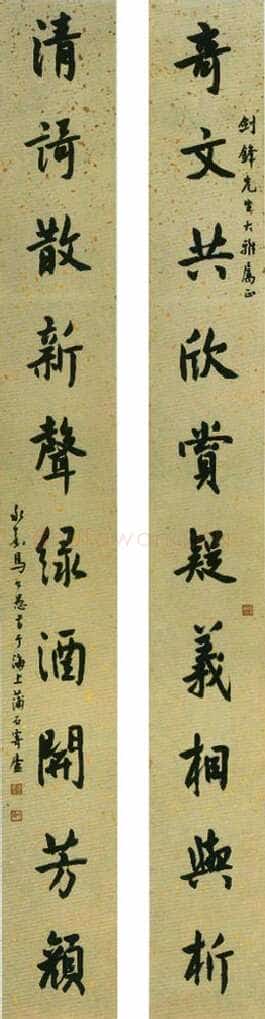 奇文共欣賞疑義相與析
劍鋒先生大雅屬正
清謌散新聲綠酒開芳顏
永嘉馬公愚書于海上蒲石寄廬